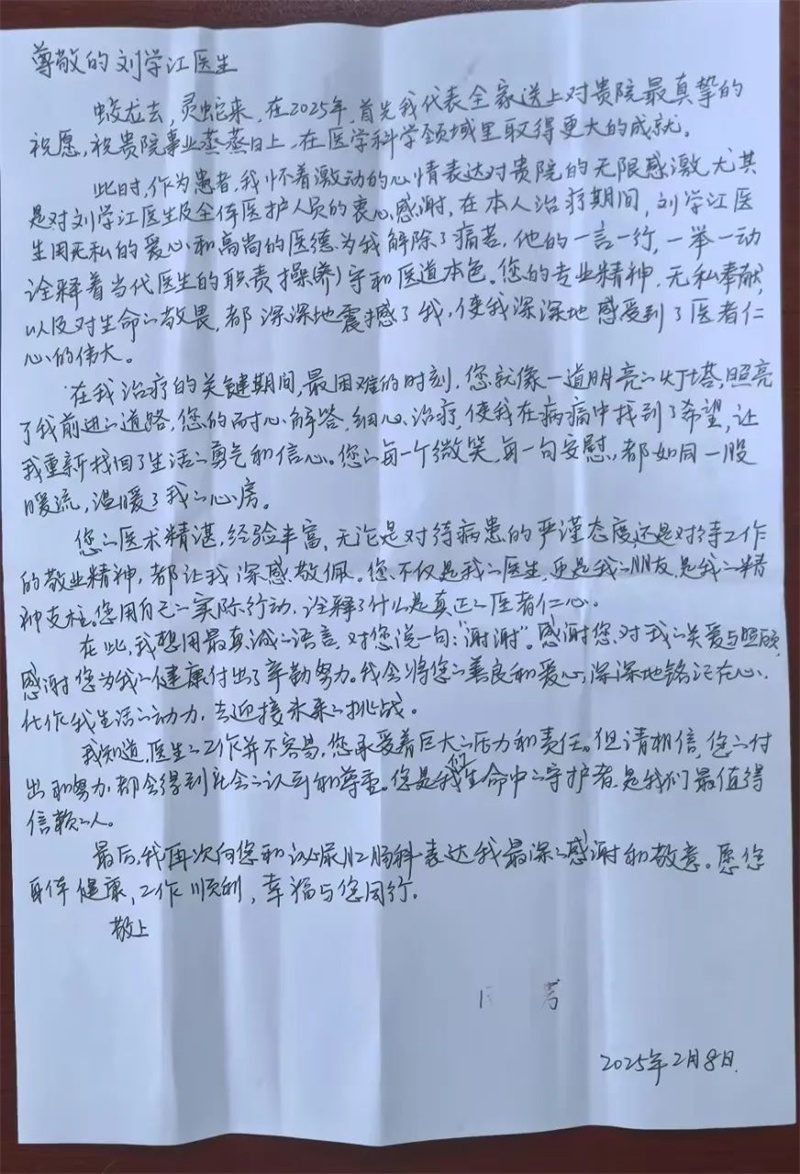 尊敬的刘学江医生
蛟龙去，灵蛇来，在2025年，首先我代表全家送上对贵院最真挚的
祝愿，祝贵院事业蒸蒸日上，在医学科学领域里取得更大的成就。
此时，作为患者，我怀着激动的心情表达对贵院的无限感激，尤其
是对刘学江医生及全体医护人员的衷心感谢，在本人治疗期间，刘学江医
生用无私的爱心和高尚的医德为我解除了痛苦，他的一言一行，一举一动
诠释着当代医生的职责操守和医道本色。您的专业精神，无私奉献，
以及对生命的敬畏，都深深地震撼了我，使我深深地感受到了医者仁
心的伟大。
在我治疗的关键期间，最困难的时刻，您就像一道明亮的灯塔，照亮
了我前进的道路，您的耐心解答，细心治疗，使我在病痛中找到了希望，让
我重新找回了生活的勇气和信心。您的每一个微笑，每一句安慰，都如同一股
暖流，温暖了我的心房。
您的医术精湛，经验丰富，无论是对待病患的严谨态度，还是对待工作
的敬业精神，都让我深感敬佩。您不仅是我的医生，更是我的朋友，是我的精
神支柱。您用自己的实际行动，诠释了什么是真正的医者仁心。
在此，我想用最真诚的语言，对您说一句：“谢谢”。感谢您对我的关爱与照顾，
感谢您为我的健康付出了辛勤努力。我会将您的善良和爱心，深深地铭记在心，
化作我生活的动力，去迎接未来的挑战。
我知道，医生的工作并不容易，您承受着巨大的压力和责任。但请相信，您的付
出和努力，都会得到社会的认可和尊重。您是我们生命中的守护者，是我们最值得
信赖的人。
最后，我再次向您和泌尿肛肠科表达我最深的感谢和敬意。愿您
身体健康，工作顺利，幸福与您同行。
敬上
2025年2月8日